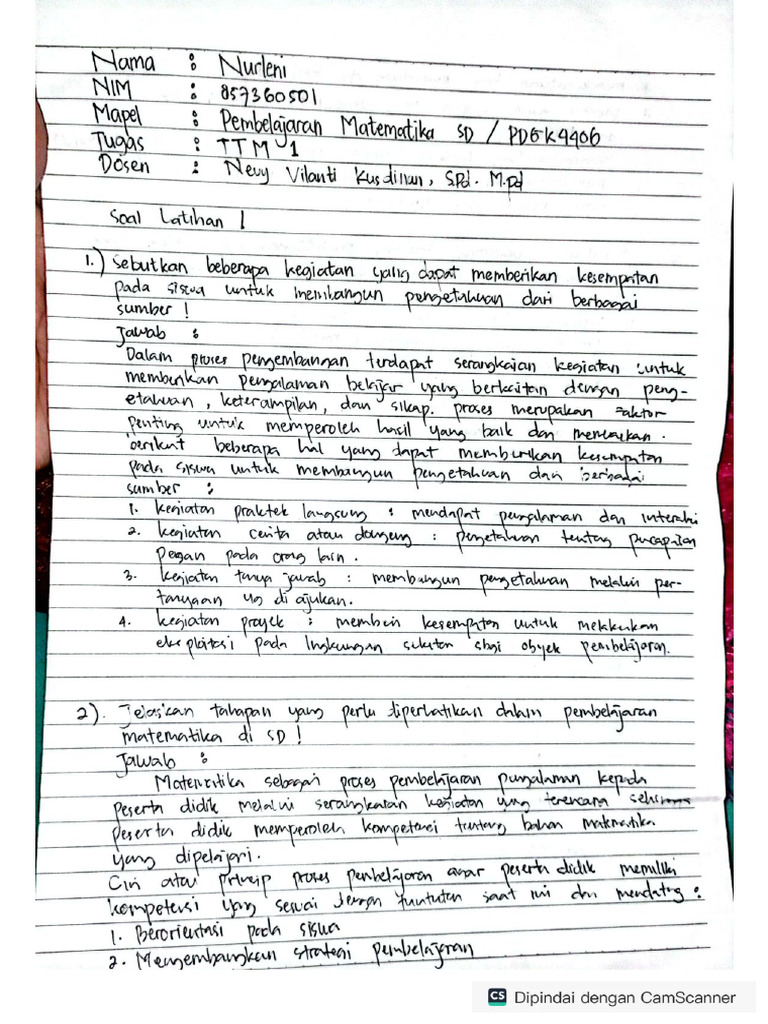 Nama : Nurleni
NIM : 857360501
Mapel : Pembelajaran Matematika SD / PDGK4406
Tugas : TTM 1
Dosen : Nevy Vilanti Kusdinan, S.Pd. M.pd
Soal Latihan 1
1.) Sebutkan beberapa kegiatan yang dapat memberikan kesempatan
pada siswa untuk membangun pengetahuan dari berbagai
sumber !
Jawab :
Dalam proses pengembangan terdapat serangkaian kegiatan untuk
memberikan pengalaman belajar yang berkaitan dengan peng-
etahuan, keterampilan, dan sikap. proses merupakan faktor
penting untuk memperoleh hasil yang baik dan
berikut beberapa hal yang dapat memberikan kesempatan
pada siswa untuk membangun pengetahuan dari berbagai
sumber :
1. kegiatan praktek langsung : mendapat pengalaman dan interaksi
2. kegiatan cerita atau dongeng : pengetahuan tentang
pada orang lain.
3. kegiatan tanya jawab : membangun pengetahuan melalui per-
tanyaan yg di ajukan.
4. kegiatan proyek : memberi kesempatan untuk melakukan
pada lingkungan sekitar sbgi obyek pembelajaran.
2). Jelaskan tahapan yang perlu diperhatikan dalam pembelajaran
matematika di SD !
Jawab :
Matematika sebagai proses pembelajaran pengalaman kepada
peserta didik melalui serangkaian kegiatan yang terencana
peserta didik memperoleh kompetensi tentang bahan matematika
yang dipelajari.
Ciri atau prinsip proses pembelajaran agar peserta didik memiliki
kompetensi yang sesuai dengan tuntutan saat ini dan mendatang :
1. Berorientasi pada siswa
2. Mengembangkan strategi pembelajaran
CS Dipindai dengan CamScanner